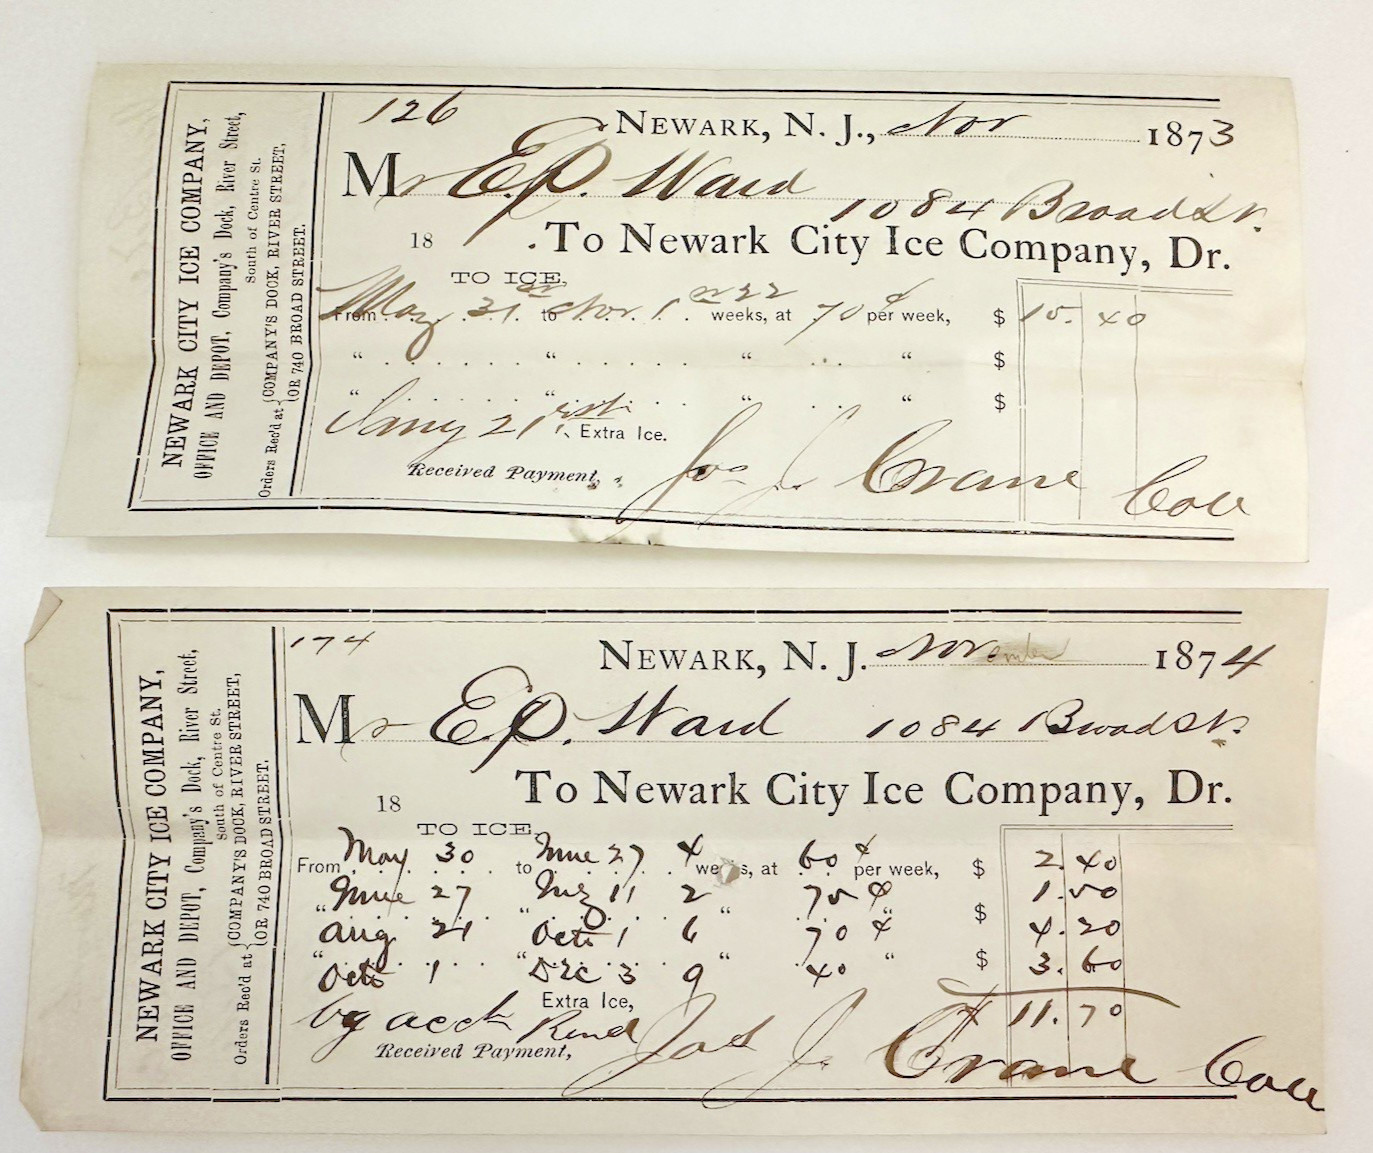 NEWARK CITY ICE COMPANY,
OFFICE AND DEPOT, Company's Dock, River Street,
South of Centre St.
Orders Rec'd at { COMPANY'S DOCK, RIVER STREET,
OR 740 BROAD STREET.
126
NEWARK, N. J., Nov 1873
Mr E.P. Ward
1084 Broad St.
18 To Newark City Ice Company, Dr.
TO ICE,
From May 31 to Nov. 1 22 weeks, at 70 ¢ per week, $ 15.40
" " " " $
" " " " $
21 Extra Ice.
Received Payment, Jos J. Crane Coll
NEWARK CITY ICE COMPANY,
OFFICE AND DEPOT, Company's Dock, River Street,
South of Centre St.
Orders Rec'd at { COMPANY'S DOCK, RIVER STREET,
OR 740 BROAD STREET.
174
NEWARK, N. J. November 1874
Mr E.P. Ward 1084 Broad St.
18 To Newark City Ice Company, Dr.
TO ICE,
From May 30 to June 27 4 weeks, at 60 ¢ per week, $ 2.40
" June 27 " 11 2 " 75 ¢ " $ 1.50
Aug 21 Oct 1 6 70 ¢ 4.20
" Oct 1 " Dec 3 9 " 40 " $ 3.60
Extra Ice, $ 11.70
by acct Rend
Received Payment, Jos J. Crane Coll